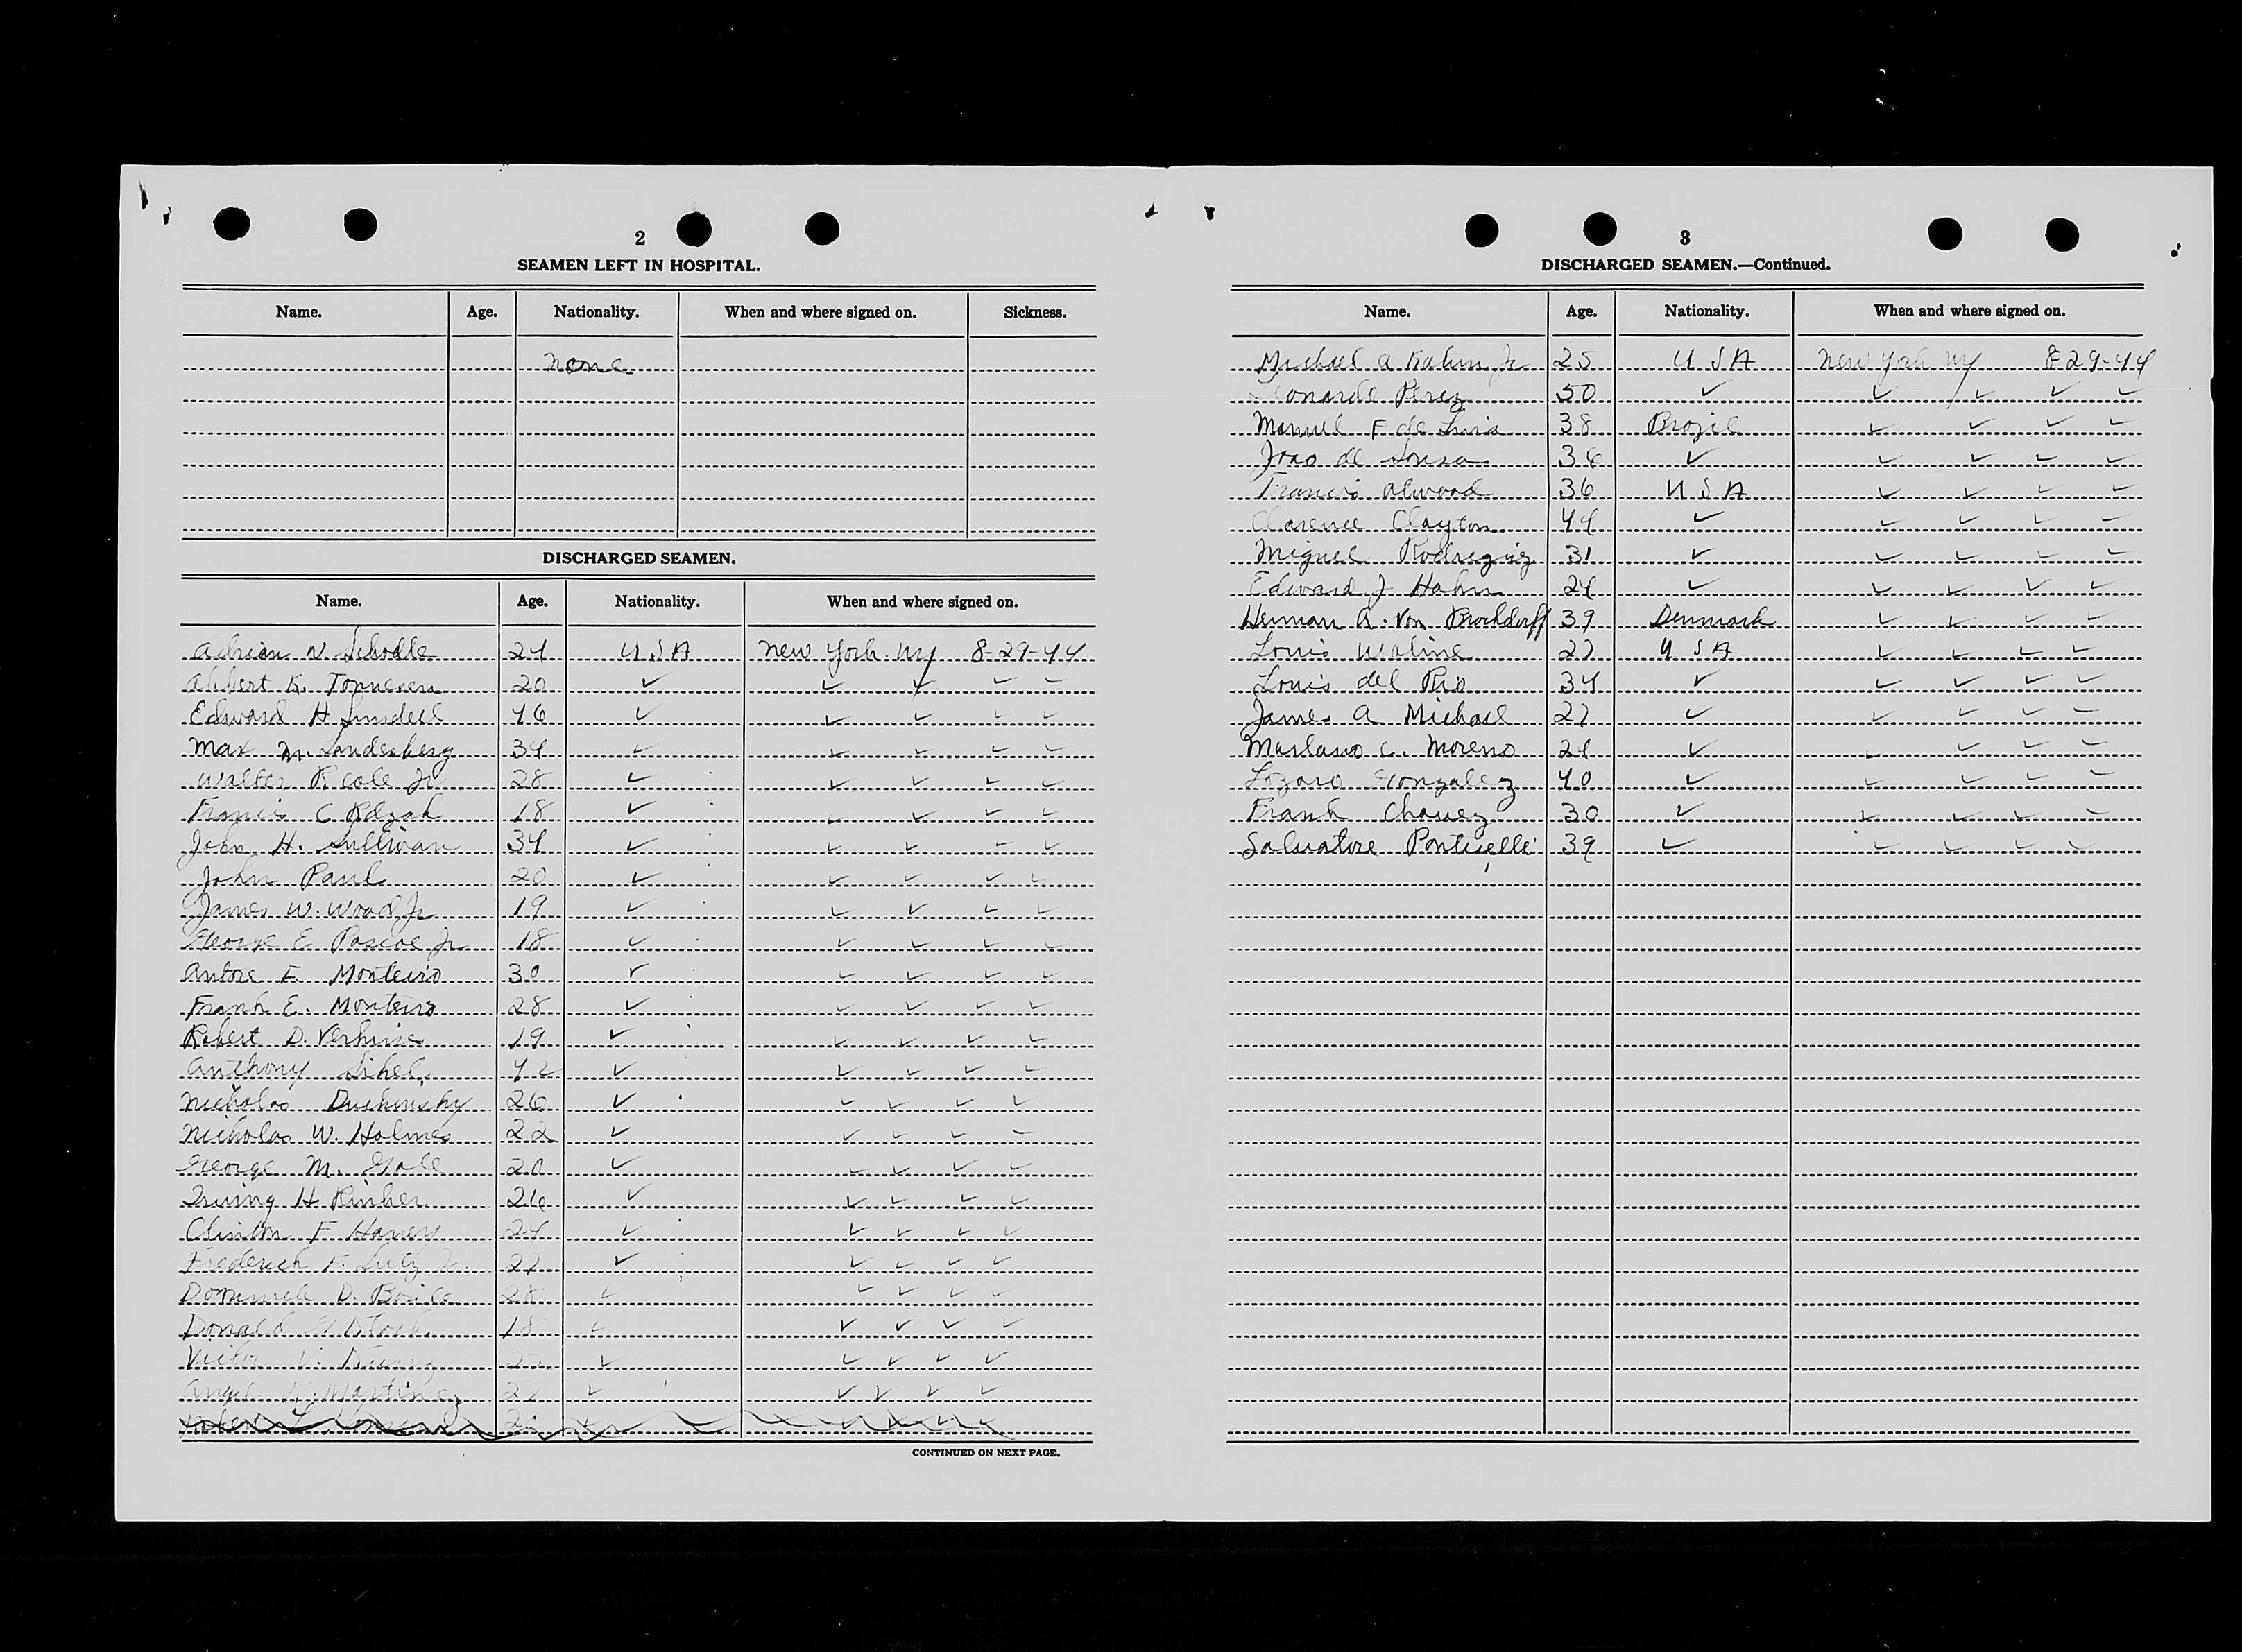 2
SEAMEN LEFT IN HOSPITAL.
Name. Age. Nationality. When and where signed on. Sickness.
None
DISCHARGED SEAMEN.
Name. Age. Nationality. When and where signed on.
Adrian N 24 U S A New York. NY 8-29-44
K. Tonnesen 20 ✓ ✓ ✓ ✓ ✓
Edward H 46 ✓ ✓ ✓ ✓ ✓
Max M. Landesberg 34 ✓ ✓ ✓ ✓ ✓
Walter R Cole Jr 28 ✓ ✓ ✓ ✓ ✓
Francis C 18 ✓ ✓ ✓ ✓ ✓
John H. Sullivan 34 ✓ ✓ ✓ ✓ ✓
John Paul 20 ✓ ✓ ✓ ✓ ✓
James W. Wood Jr 19 ✓ ✓ ✓ ✓ ✓
George E Pascoe Jr 18 ✓ ✓ ✓ ✓ ✓
Antone F Monteiro 30 ✓ ✓ ✓ ✓ ✓
Frank E. Monteiro 28 ✓ ✓ ✓ ✓ ✓
Robert D. 19 ✓ ✓ ✓ ✓ ✓
Anthony 42 ✓ ✓ ✓ ✓ ✓
Nicholas 26 ✓ ✓ ✓ ✓ ✓
Nicholas W. Holmes 22 ✓ ✓ ✓ ✓ ✓
George M. 20 ✓ ✓ ✓ ✓ ✓
Irving H 26 ✓ ✓ ✓ ✓ ✓
Clinton F Haney 24 ✓ ✓ ✓ ✓ ✓
Frederick F. Lutz Jr. 22 ✓ ✓ ✓ ✓ ✓
D. 28 ✓ ✓ ✓ ✓ ✓
Donald 18 ✓ ✓ ✓ ✓ ✓
Victor V. ✓ ✓ ✓ ✓ ✓
Angel Martinez ✓ ✓ ✓ ✓ ✓
CONTINUED ON NEXT PAGE.
3
DISCHARGED SEAMEN.—Continued.
Name. Age. Nationality. When and where signed on.
Michael A Jr 25 U S A New York NY 8-29-44
Leonardo Perez 50 ✓ ✓ ✓ ✓ ✓
Manuel F de 38 Brazil ✓ ✓ ✓ ✓
Joao de Sousa ✓ ✓ ✓ ✓ ✓
Francis Atwood 36 U S A ✓ ✓ ✓ ✓
Clarence Clayton 44 ✓ ✓ ✓ ✓ ✓
Miguel 31 ✓ ✓ ✓ ✓ ✓
Edward J Hahn 24 ✓ ✓ ✓ ✓ ✓
Herman A. Von Brockdorff 39 Denmark ✓ ✓ ✓ ✓
Louis 27 U S A ✓ ✓ ✓ ✓
Louis del Rio 34 ✓ ✓ ✓ ✓ ✓
James A Michael 27 ✓ ✓ ✓ ✓ ✓
C. Moreno 24 ✓ ✓ ✓ ✓ ✓
Lozaro Gonzalez 40 ✓ ✓ ✓ ✓ ✓
Frank Chavez 30 ✓ ✓ ✓ ✓ ✓
Salvatore Ponticelli 39 ✓ ✓ ✓ ✓ ✓